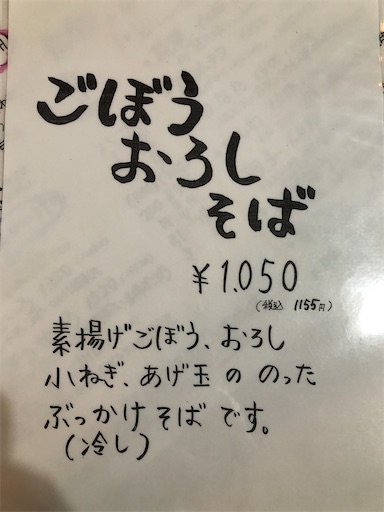 ごぼう
おろし
そば
¥1.050
(税込 1155円)
素揚げごぼう、おろし
小ねぎ、あげ玉の のった
ぶっかけそばです。
(冷し)